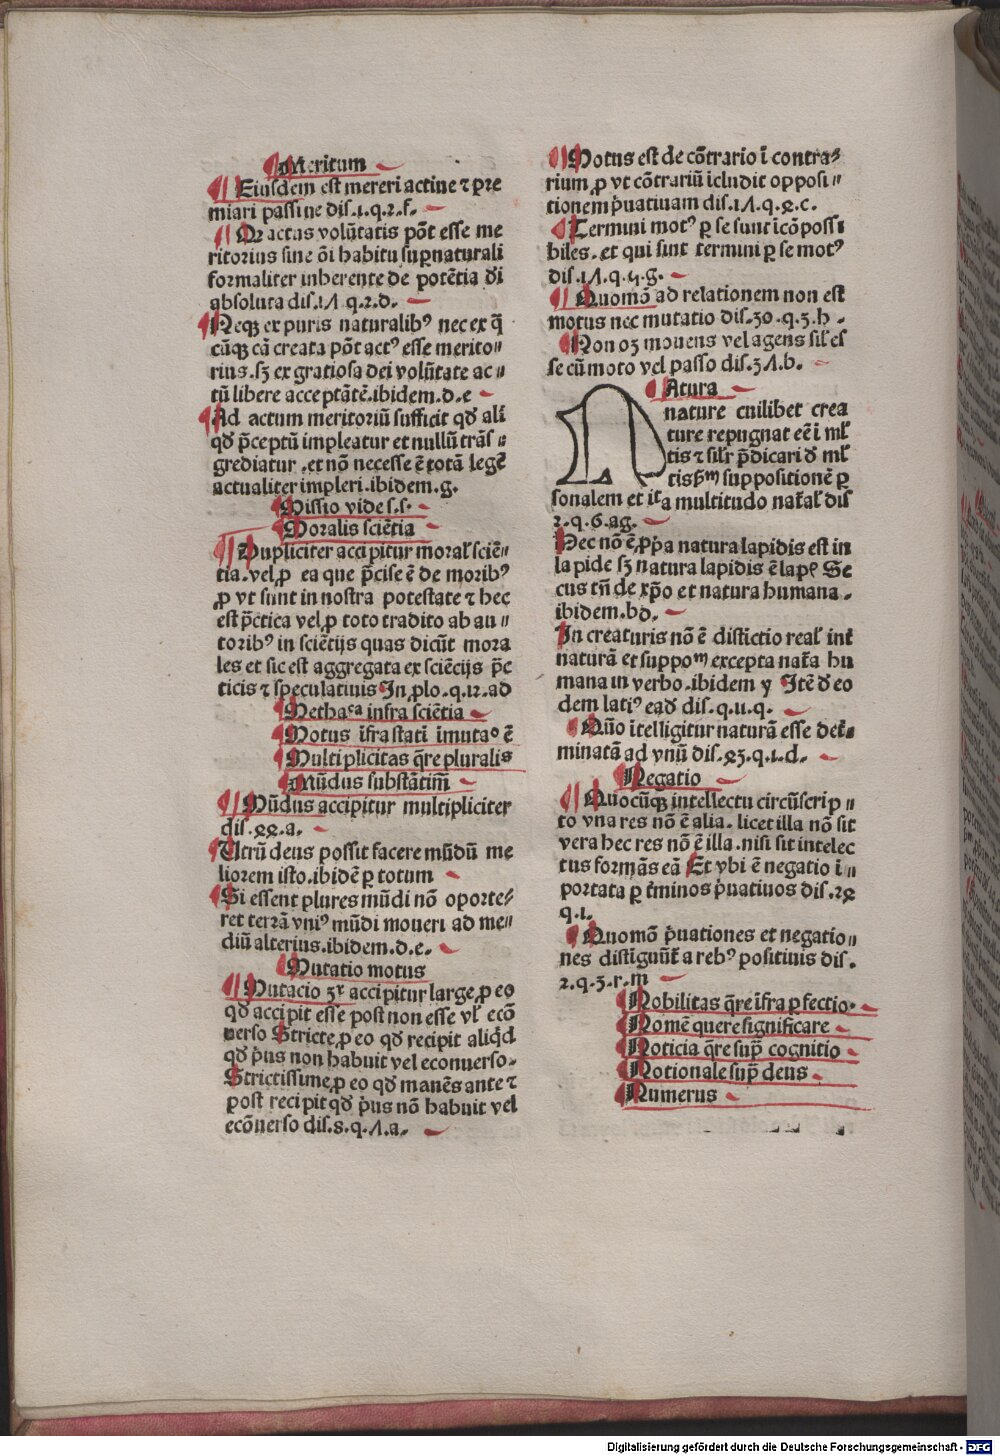 Meritum
Eiusdem est mereri actiue ⁊ p̄re
miari passiue dis.1.q.2.f.
Q2 actus volūtatis pōt esse me
ritorius sine ōi habitu sup̄naturali
formaliter inherente de potētia di
absoluta dis.1Λ.q.2.d.
Neqꝫ ex puris naturalibꝰ nec ex q̄
cūqꝫ cā creata pōt actꝰ esse merito⸗
rius.sꝫ ex gratiosa dei volūtate ac⸗
tū libere acceptātē.ibidem.d.e
Ad actum meritoriū sufficit qđ ali
qđ p̄ceptū impleatur et nullū trās⸗
grediatur.et nō necesse ē totā legē
actualiter impleri.ibidem.g.
Missio vide s.s.
Moralis sciētia
Dupliciter accipitur moral̓ sciē⸗
tia.vel ꝓ ea que p̄cise ē de moribꝰ
ꝓ vt sunt in nostra potestate ⁊ hec
est p̄ctica vel ꝓ toto tradito ab au⸗
toribꝰ in sciētijs quas dicūt mora
les et sic est aggregata ex sciētijs p̄c
ticis ⁊ speculatiuis In ꝓlo.q.12.ad
Methaᶜᵃ infra sciētia
Motus īfra statī īmutaᵒ ē
Multiplicitas q̄re pluralis
Mūdus substātim̄
Mūdus accipitur multipliciter
dis.44.a.
Utrū deus possit facere mūdū me
liorem isto.ibidē ꝑ totum
Si essent plures mūdi nō oporte⸗
ret terrā vniꝰ mūdi moueri ad me⸗
diū alterius.ibidem.d.e.
Mutatio motus
Mutacio 3ʳ accipitur large ꝓ eo
qđ accipit esse post non esse vl̓ ecō
uerso Stricte ꝓ eo qđ recipit aliq̇d
qđ p̄us non habuit vel econuerso.
Strictissime ꝓ eo qđ manēs ante ⁊
post recipit qđ p̄us nō habuit vel
ecōuerso dis.8.q.Λ.a.
Motus est de cōtrario ī contra⸗
rium ꝓ vt cōtrariū īcludit opposi⸗
tionem p̄uatiuam dis.1Λ.q.4.c.
Termini motꝰ ꝑ se sunt īcōpossi
biles.et qui sunt termini ꝑ se motꝰ
dis.1Λ.q.5.g.
Quomō ad relationem non est
motus nec mutatio dis.30.q.3.h.
Non oꝫ mouens vel agens sil̓ es
se cū moto vel passo dis.3Λ.b.
Natura
nature cuilibet crea
ture repugnat eē ī ml̓
tis ⁊ sil̓r p̄dicari đ ml̓
tis ꝑm suppositionē ꝑ
sonalem et ita multitudo nat̄al̓ dis
2.q.6.ag.
Hec nō ē ꝓp̄a natura lapidis est in
lapide sꝫ natura lapidis ē lapꝭ Se
cus tn̄ de xp̄o et natura humana.
ibidem.bd.
In creaturis nō ē distictio real̓ int̄
naturā et suppoᵐ excepta nat̄a hu
mana in verbo.ibidem y Itē đ eo
dem latiꝰ ead dis.q.u.q.
Quō ītelligitur naturā esse det̄⸗
minatā ad vnū dis.43.q.1.d.
Negatio
Quocūqꝫ intellectu circūscrip⸗
to vna res nō ē alia.licet illa nō sit
vera hec res nō ē illa.nisi sit intelec
tus formās eā Et vbi ē negatio ī⸗
portata ꝑ t̄minos p̄uatiuos dis.24
q.1.
Quomō p̄uationes et negatio⸗
nes distīguūt̄ a rebꝰ positiuis dis.
2.q.3.r.m
Nobilitas q̄re īfra ꝑfectio.
Nomē quere significare
Noticia q̄re sup̄ cognitio
Notionale sup̄ deus
Numerus
Digitalisierung gefördert durch die Deutsche Forschungsgemeinschaft - DFG